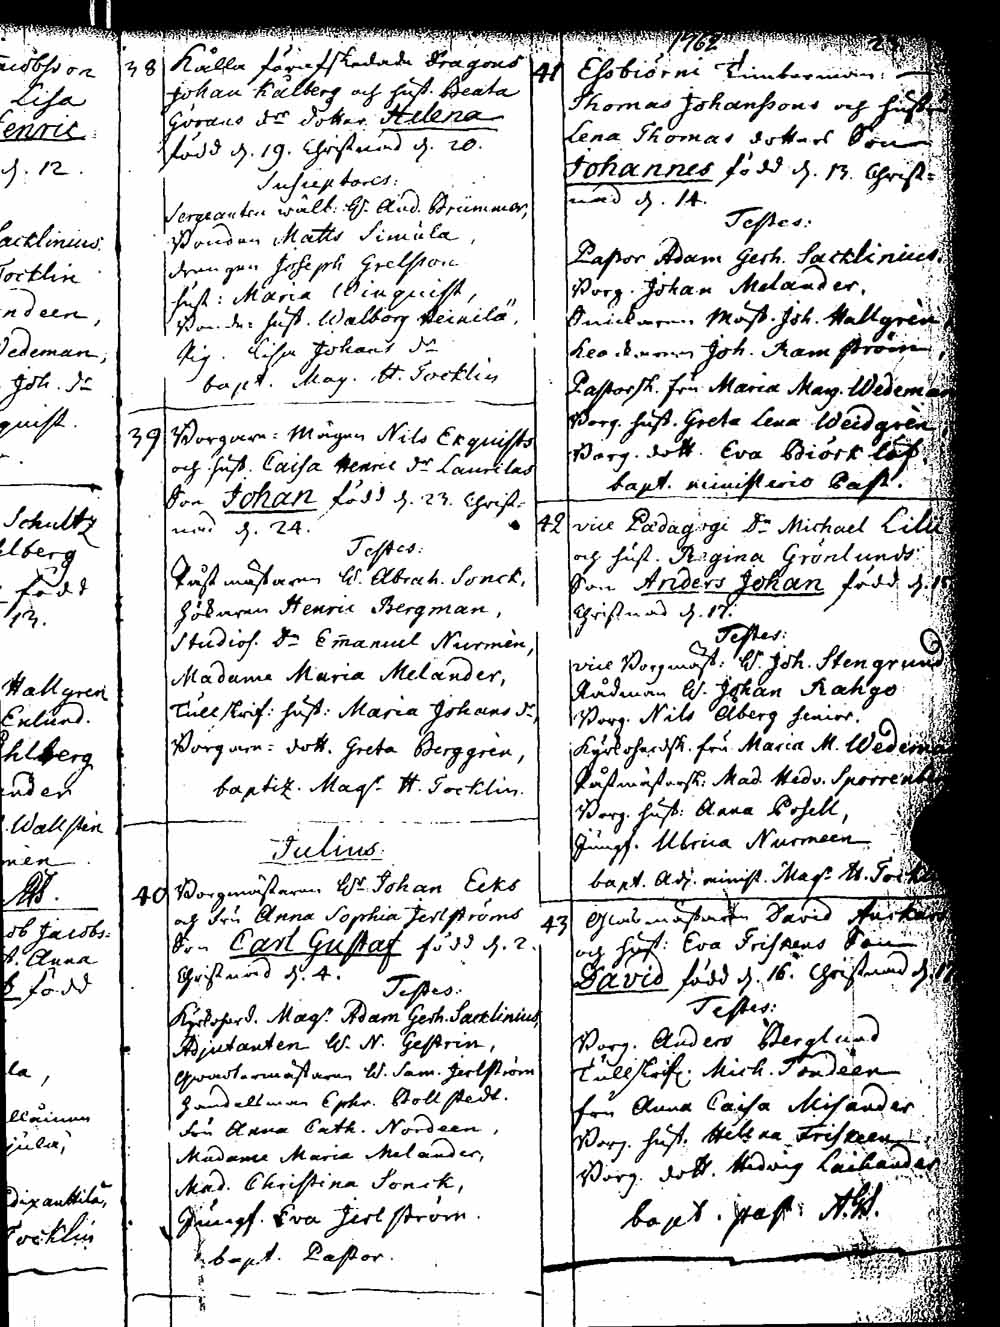 1762
Jacobsson
Lisa
Henric
d. 12.
Sacklinius
Tocklin
ndeen,
Wedeman,
Joh. dr
quist.
Schultz
hlberg
född
13.
Hallgren
Enlund.
ahlberg
ander
Wallstén
mén
AGS.
Jacobs:
Anna
född
la,
jula,
Tocklin
38 Dragons
Johan Kålberg och hust. Beata
Görans dr dotter Helena
född d. 19. Christnad d. 20.
Susceptores:
Sergeanten wälb: H. And. Brümmer,
Bonden Matts Simula,
drengen Joseph Grelsson
hust: Maria Winquist,
Bond: hust. Walborg Heinilä,
Pig. Lisa Johans dr
bapt. Mag. H. Tocklin
39 Borgaren: Nils Ekquists
och hust. Caisa Henric dr Laurilas
Son Johan född d. 23. Christ-
nad d. 24.
Testes:
H. Abrah. Sonck,
Henric Bergman,
Studios. Dn Em̄anuel Nurmén,
Madame Maria Melander,
Tullskrif: hust: Maria Johans dr,
Borgare: dott. Greta Berggrén,
baptiz. Magr H. Tocklin.
Julius.
40 Borgmästaren Hr Johan Ecks
och fru Anna Sophia Jerlströms
Son Carl Gustaf född d. 2.
Christnad d. 4.
Testes:
Kyrkoherd. Magr Adam Gerh. Sacklinius,
Adjutanten H. N. Gestrin,
Qvartermästaren H. Sam. Jerlström
Handelsman Ephr. Bollstedt.
fru Anna Cath. Nordeen,
Madame Maria Melander,
Mad. Christina Sonck,
Jungf. Eva Jerlström.
bapt. Pastor.
41 Essbiörni Timberman:
Thomas Johanssons och hustru
Lena Thomas dotters Son
Johannes född d. 13. Christ-
nad d. 14.
Testes:
Pastor Adam Gerh. Sacklinius.
Borg. Johan Melander,
Snickaren Mäst. Joh. Hallgrén,
Joh. Ramström,
Pastorsk. fru Maria Mag. Wedeman
Borg. hust. Greta Lena Weidgrén,
Borg. dott. Eva Biörklöf,
bapt. ministerio Past.
42 vice Pædagogi Dn Michael Lille
och hust. Regina Grönlunds
Son Anders Johan född d. 15
Christnad d. 17.
Testes:
vice Borgmäst: H. Joh. Stengrund
Rådman H. Johan Rahgo
Borg. Nils Åberg senior.
Kyrkoherdsk. fru Maria M. Wedeman
Mad. Hedv. Sporrenberg
Borg. hust: Anna Posell,
Jungf. Ulrica Nurmeen
bapt. Adj. minist. Magr H. Tocklin
43 David
och hust: Eva Friskens Son
David född d. 16. Christnad d. 17
Testes:
Borg. Anders Berglund
Tullskrif: Mich. Tondeen
fru Anna Caisa Misander
Borg. hust. Helena Friskeen
Borg. dott. Hedvig Laibander
bapt. past. AGS.